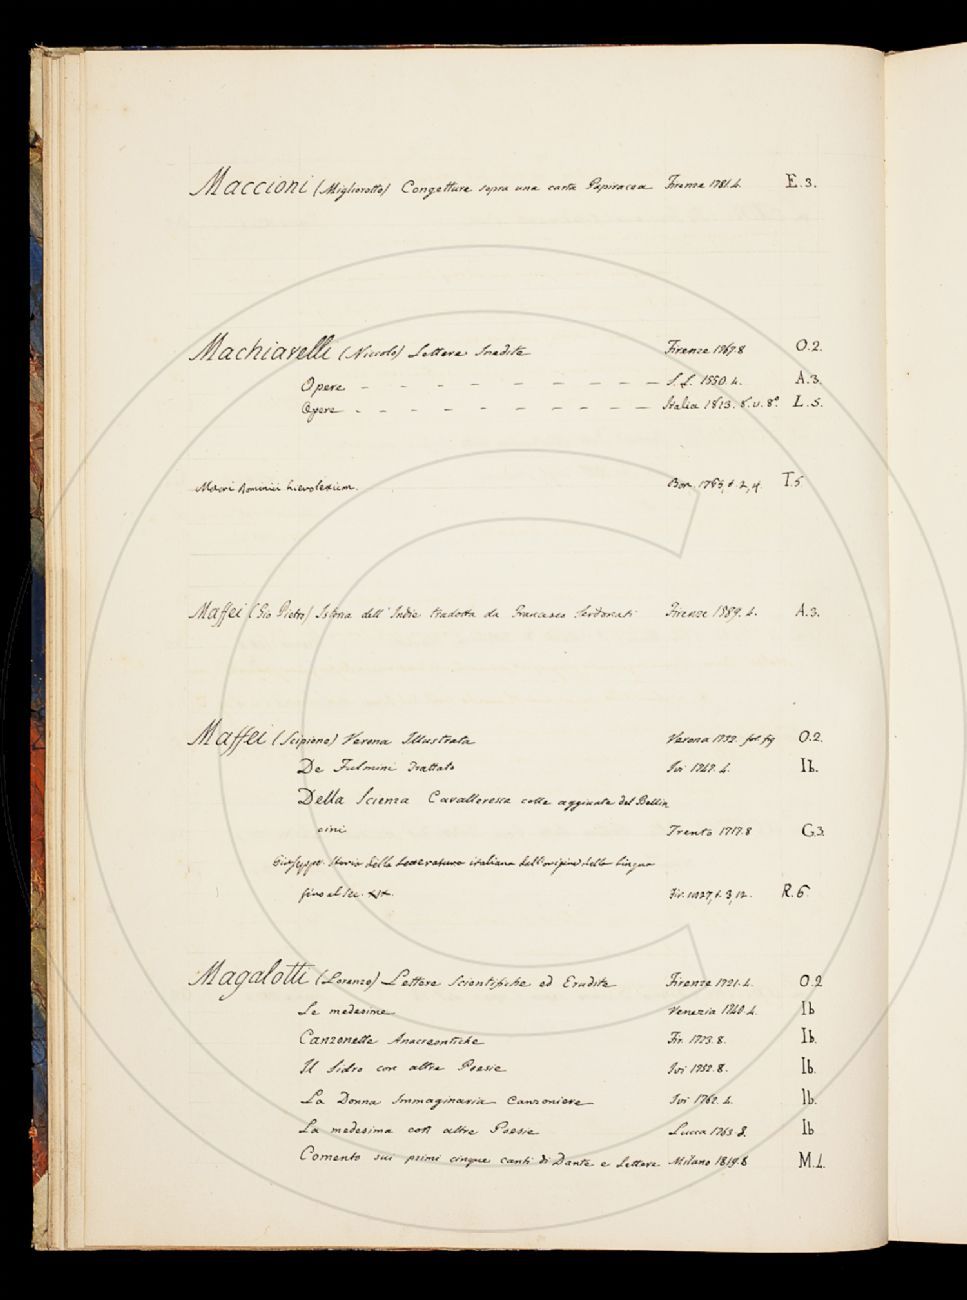 Maccioni (Migliorotto) Congetture sopra una carta Papiracea Firenze 1781.4. E.3.
Machiavelli (Niccolo) Lettere Inedite Firenze 1767.8 O.2.
Opere – – – – – – – – – – S.L. 1550.4. A.3.
Opere – – – – – – – – – – Italia 1813. 8.v.8° L.5.
Macri Dominici hierolexicon. Bon. 1765, t. 2, 4. T.5
Maffei (Gio Pietro) Istoria dell' Indie tradotta da Francesco Serdonati Firenze 1589.4. A.3.
Maffei (Scipione) Verona Illustrata Verona 1732. fol fig O.2.
De Fulmini Trattato Ivi 1747.4. Ib.
Della Scienza Cavalleresca colle aggiunte del Bellin
cini Trento 1717.8 G.3.
Giuseppe. Storia della Letteratura italiana dall'origine della lingua
fino al sec. XIX. Fir. 1827, t. 3, 12. R.6.
Magalotti (Lorenzo) Lettere Scientifiche ed Erudite Firenze 1721.4. O.2
Le medesime Venezia 1740.4. Ib
Canzonette Anacreontiche Fir. 1723.8. Ib.
Il Sidro con altre Poesie Ivi 1752.8. Ib.
La Donna Immaginaria Canzoniere Ivi 1762.4. Ib.
La medesima con altre Poesie Lucca 1763 8. Ib
Comento sui primi cinque canti di Dante e Lettere Milano 1819.8 M.4.